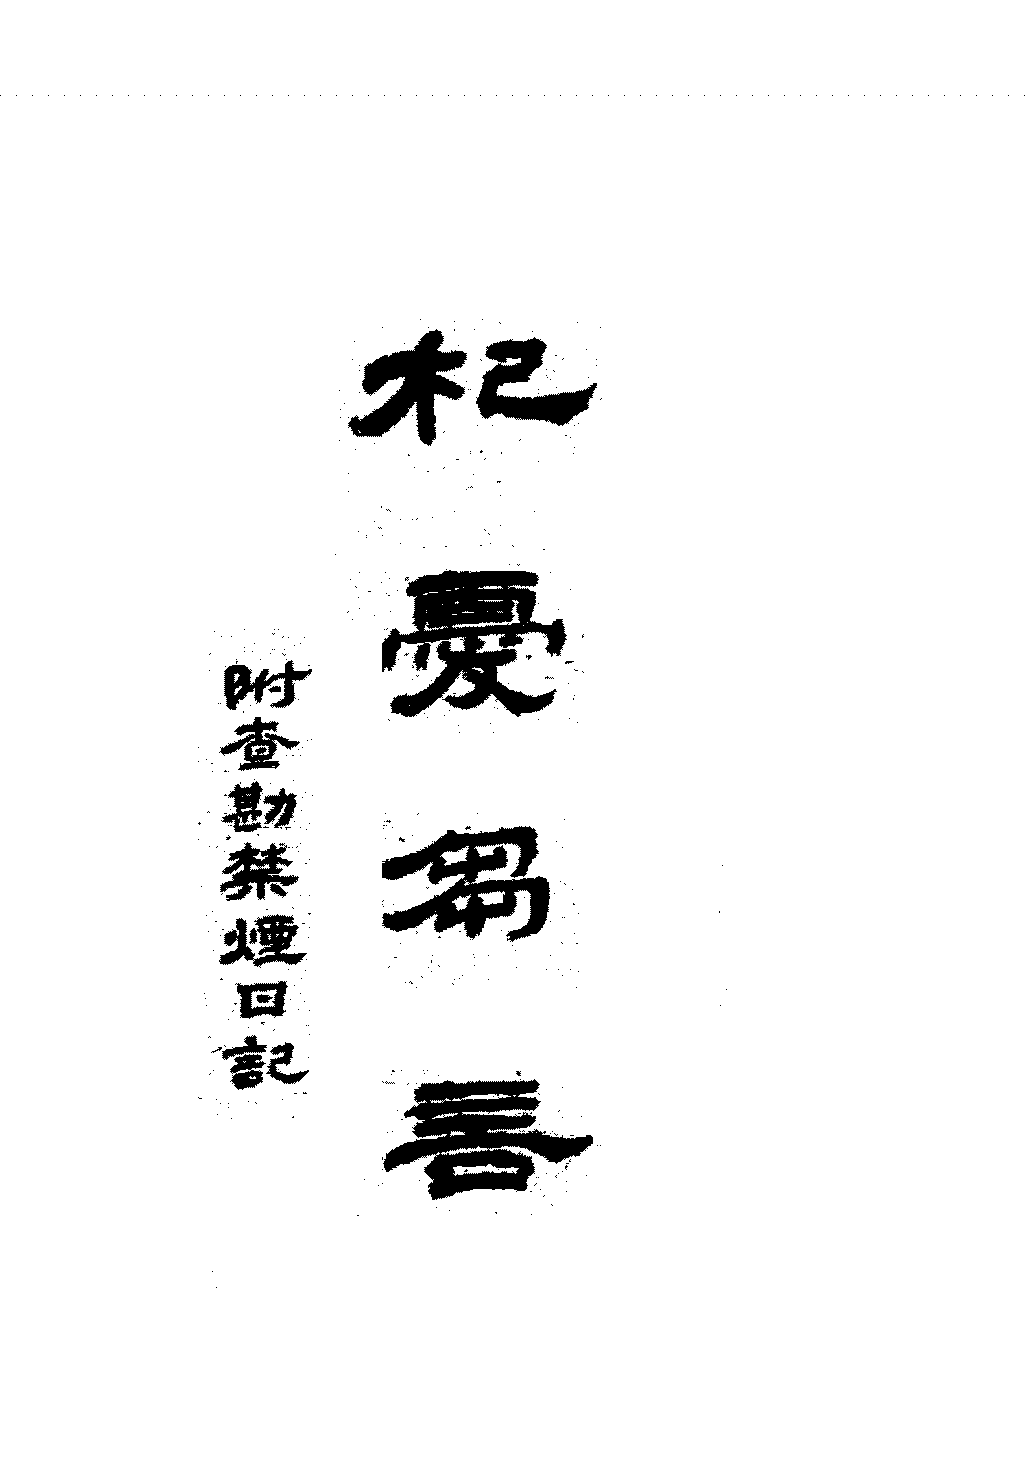 杞憂芻言
附查勘禁煙日記